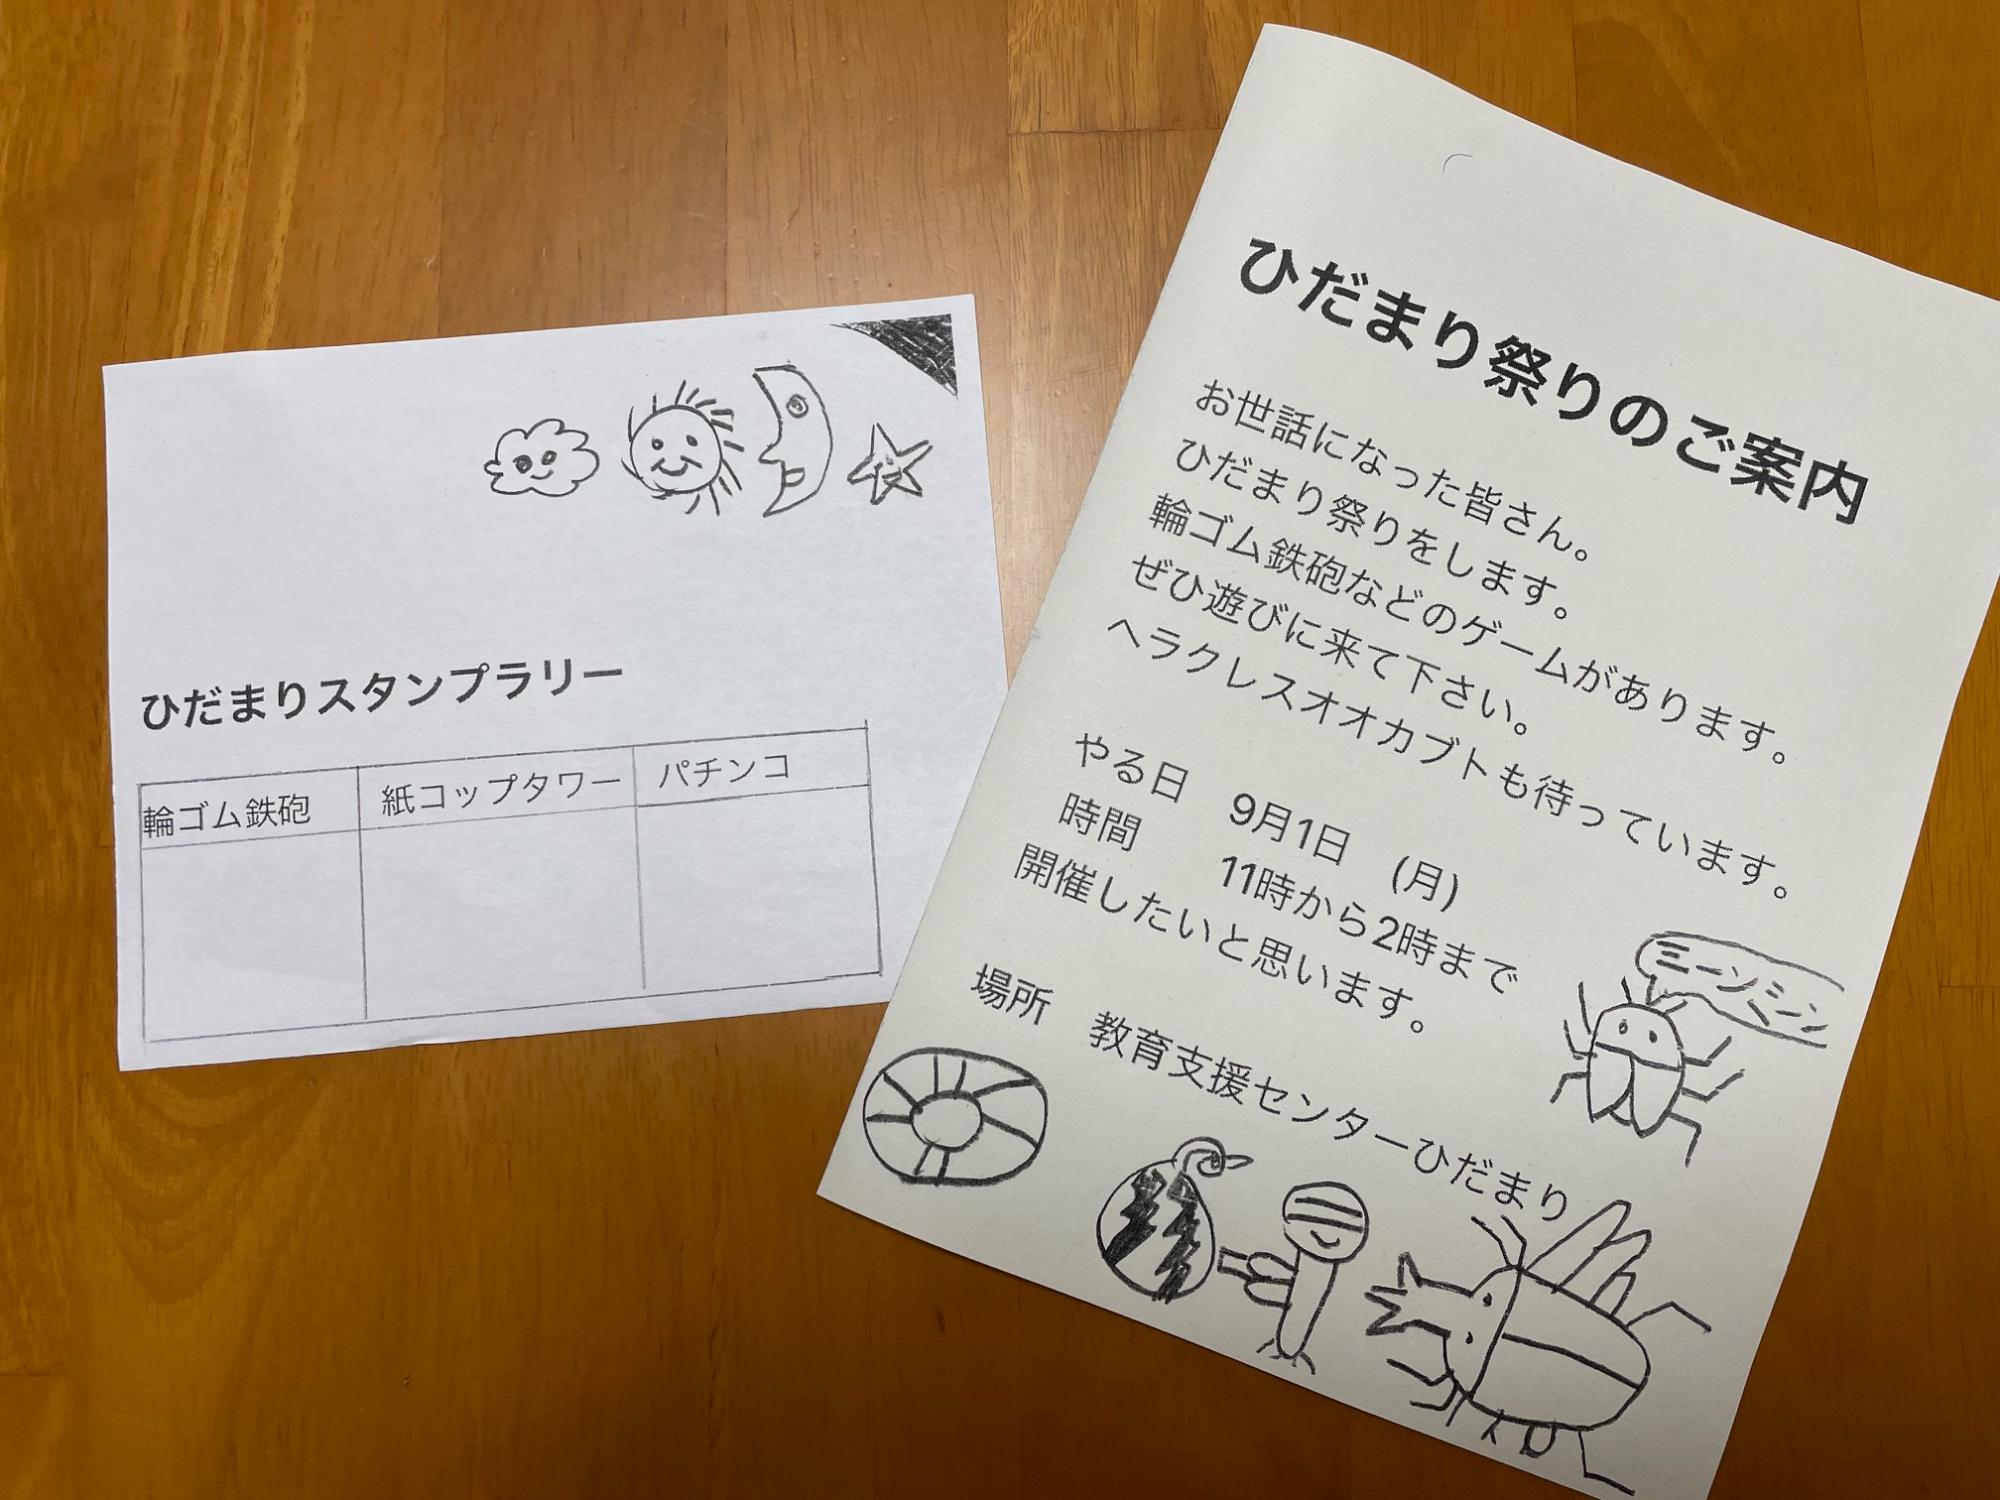 ひだまりスタンプラリー
輪ゴム鉄砲 紙コップタワー パチンコ
ひだまり祭りのご案内
お世話になった皆さん。
ひだまり祭りをします。
輪ゴム鉄砲などのゲームがあります。
ぜひ遊びに来て下さい。
ヘラクレスオオカブトも待っています。
やる日 9月1日 (月)
時間 11時から2時まで
開催したいと思います。
場所 教育支援センターひだまり
ミーンミン